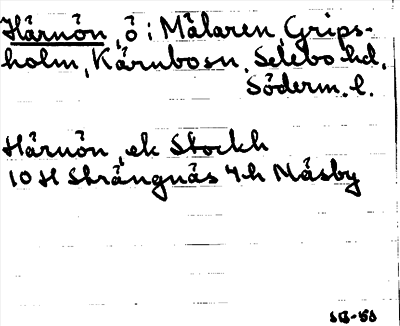 Härnön, ö i Mälaren, Grips-
holm, Kärnbosn, Selebo hd,
Söderm. l.
Härnön, ek Stockh
10 H Strängnäs 4h Näsby